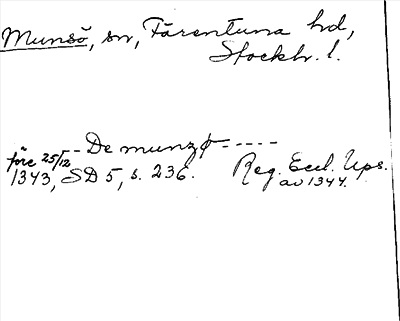 Munsö, sn, Färentuna hd,
Stockh. l.
-- De munzø -----
före 25/12
1343, SD 5, s. 236.
Reg. Eccl. Ups.
av 1344.